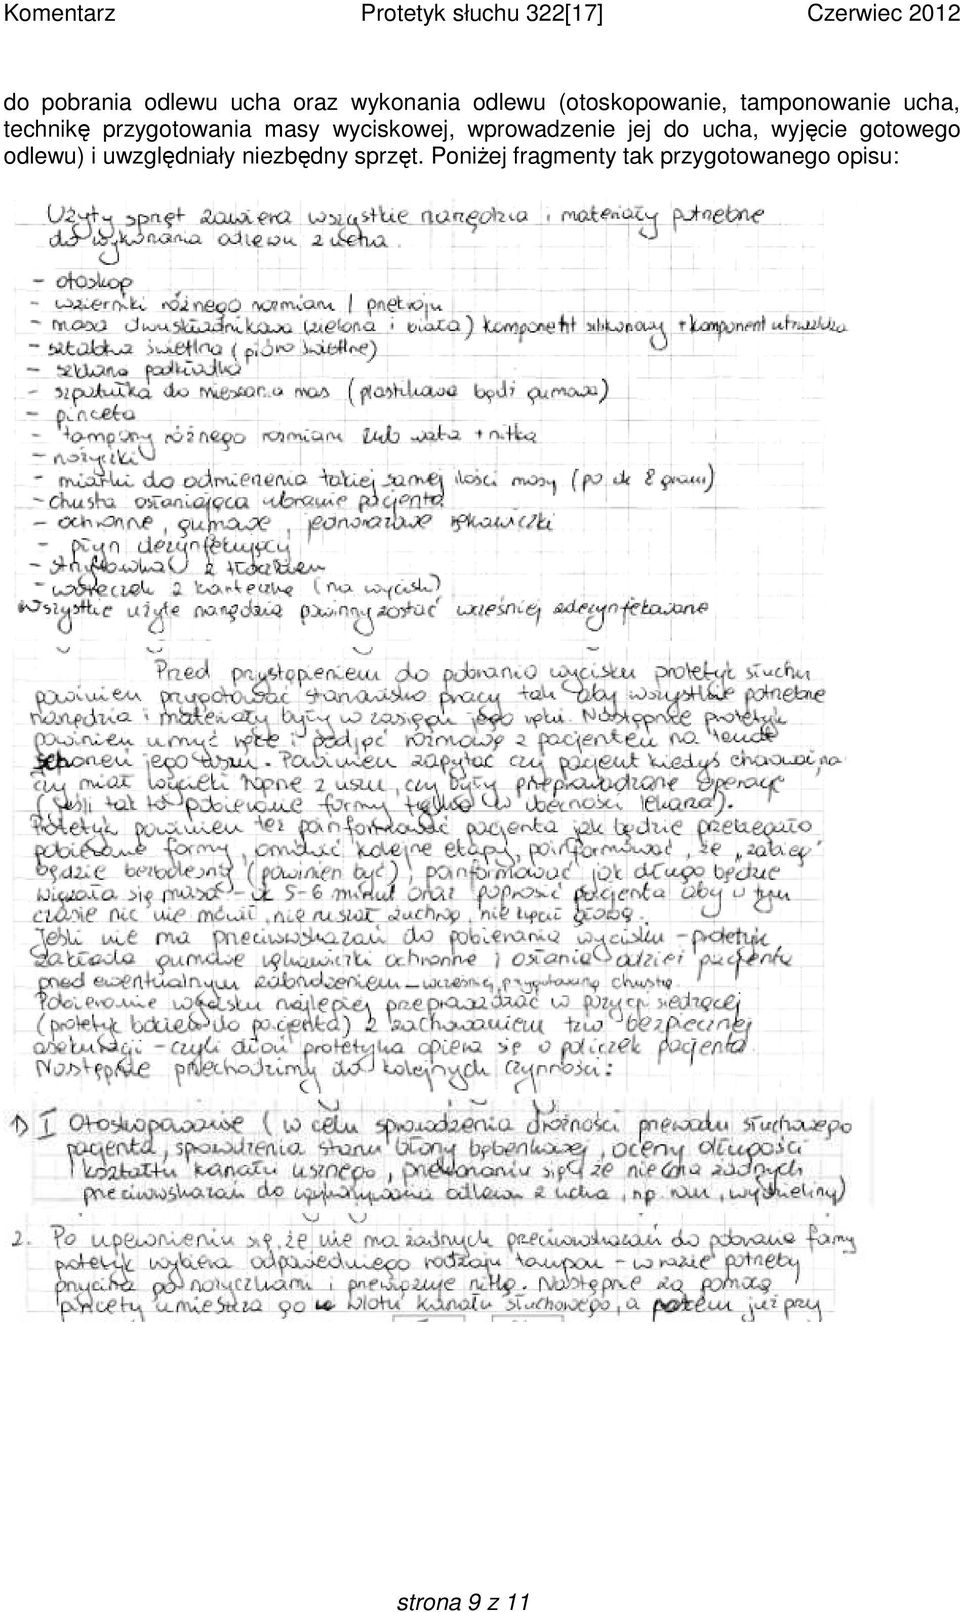 Komentarz Protetyk słuchu 322[17] Czerwiec 2012
do pobrania odlewu ucha oraz wykonania odlewu (otoskopowanie, tamponowanie ucha,
technikę przygotowania masy wyciskowej, wprowadzenie jej do ucha, wyjęcie gotowego
odlewu) i uwzględniały niezbędny sprzęt. Poniżej fragmenty tak przygotowanego opisu:
Użyty sprzęt zawiera wszystkie narzędzia i materiały potrzebne
do wykonania odlewu z ucha.
- otoskop
- wzierniki różnego rozmiaru / przekroju
- masa dwuskładnikowa (zielona i biała) komponent silikonowy + komponent utwardza
- sztabka świetlna (pióro świetlne)
- szklana podkładka
- szpatułka do mieszania mas (plastikowa bądź gumowa)
- pinceta
- tampony różnego rozmiaru lub wata + nitka
- nożyczki
- miarki do odmierzenia takiej samej ilości masy (po ok 8 gram)
- chusta osłaniająca ubranie pacjenta
- ochronne, gumowe, jednorazowe rękawiczki
- płyn dezynfekujący
- strzykawka z tłokiem
- woreczek z karteczką (na wycisk)
Wszystkie użyte narzędzia powinny zostać wcześniej zdezynfekowane
Przed przystąpieniem do pobrania wycisku protetyk słuchu
powinien przygotować stanowisko pracy tak aby wszystkie potrzebne
narzędzia i materiały były w zasięgu jego ręki. Następnie protetyk
powinien umyć ręce i podjąć rozmowę z pacjentem na temat
schorzeń jego uszu. Powinien zapytać czy pacjent kiedyś chorował na
czy miał wycieki ropne z uszu, czy były przeprowadzone operacje
(jeśli tak to pobieranie formy tylko w obecności lekarza).
Protetyk powinien też poinformować pacjenta jak będzie przebiegało
pobieranie formy, omówić kolejne etapy, poinformować, że „zabieg"
będzie bezbolesny (powinien być), poinformować jak długo będzie
wiązała się masa - ok 5-6 minut oraz poprosić pacjenta aby w tym
czasie nic nie mówił, nie ruszał żuchwą, nie kręcił głową.
Jeśli nie ma przeciwwskazań do pobierania wycisku - protetyk
zakłada gumowe rękawiczki ochronne i osłania odzież pacjenta
przed ewentualnym zabrudzeniem - wcześniej przygotowaną chustą
Pobieranie wycisku najlepiej przeprowadzać w pozycji siedzącej
(protetyk do pacjenta) z zachowaniem tzw bezpiecznej
asekuracji - czyli dłoń protetyka opiera się o policzek pacjenta.
Następnie przechodzimy do kolejnych czynności:
1) I Otoskopowanie (w celu sprawdzenia drożności przewodu słuchowego
pacjenta, sprawdzenia stanu błony bębenkowej, oceny długości
i kształtu kanału usznego, przekonaniu się, że nie ma żadnych
przeciwwskazań do wykonywania odlewu z ucha, np. ran, wydzieliny)
2. Po upewnieniu się, że nie ma żadnych przeciwwskazań do pobrania formy
protetyk wybiera odpowiedniego rodzaju tampon - w razie potrzeby
przycina go nożyczkami i przewiązuje nitką. Następnie za pomocą
pincety umieszcza go w wlotu kanału słuchowego, a potem już przy
strona 9 z 11